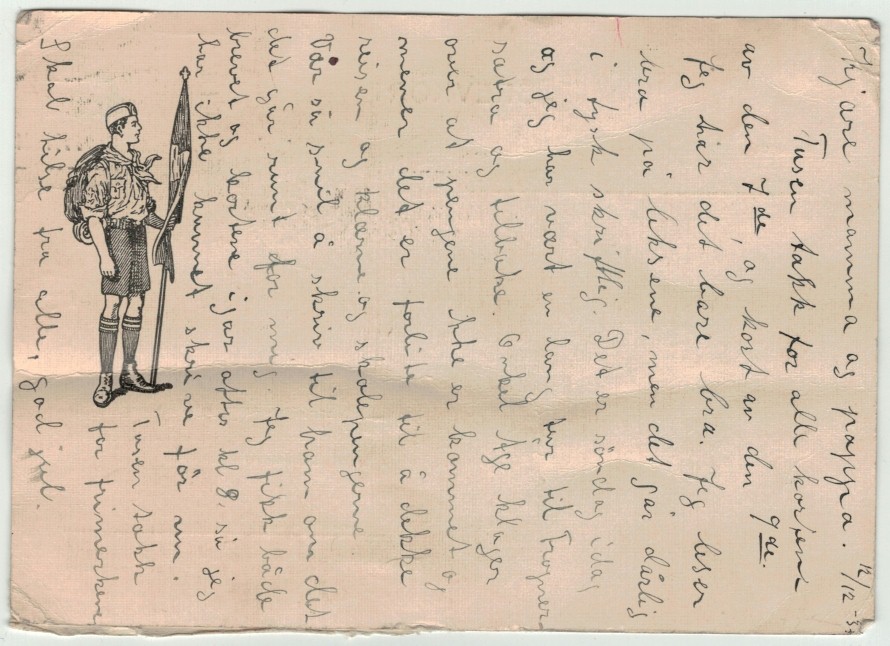 Kjære mamma og pappa. 12/12 -37
Tusen takk for alle kortene
av den 7de, og kort av den 9de.
Jeg har det bare bra. Jeg leser
bra på leksene, men det går dårlig
i tysk skriftlig. Det er söndag idag
og jeg har vært en lang tur til Frogner
satra og tilbake. Onkel Åge klager
over at pengene ikke er kommet og
mener det er forlite til å dekke
reisen og klærne og skolepengene.
Vår så snil å skriv til ham om det
det går rundt for mig. Jeg fikk både
brevet og kortene igår aftes kl 8, så jeg
har ikke kunnet skrive för nu.
Tusen takk
for frimerkene
Skal hilse fra alle, god jul.